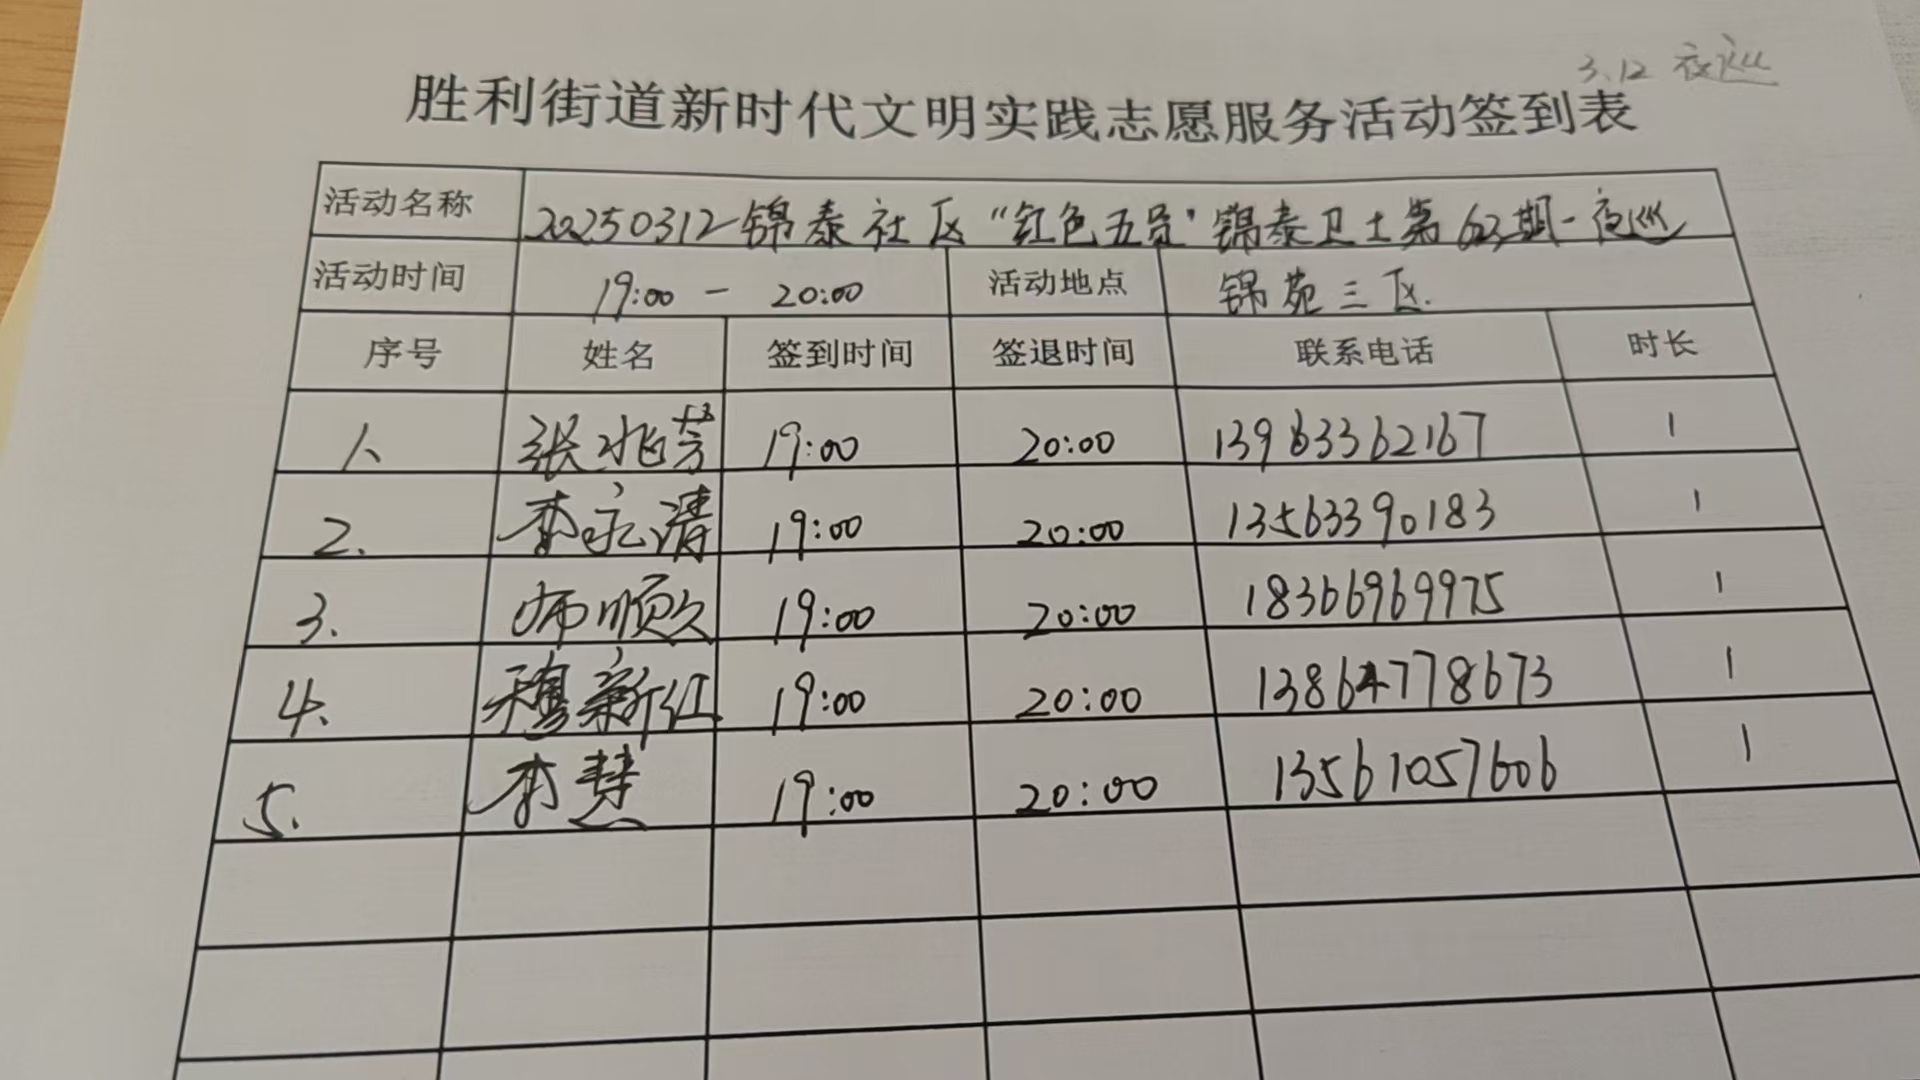 3.12 夜巡
胜利街道新时代文明实践志愿服务活动签到表
活动名称 20250312-锦泰社区“红色五员”锦泰卫士第63期-夜巡
活动时间 19:00 - 20:00 活动地点 锦苑三区.
序号 姓名 签到时间 签退时间 联系电话 时长
1、 张兆芳 19:00 20:00 13963362167 1
2. 李永清 19:00 20:00 13563390183 1
3. 师顺久 19:00 20:00 18366969975 1
4. 穆新红 19:00 20:00 13864778673 1
5. 李慧 19:00 20:00 13561057606 1